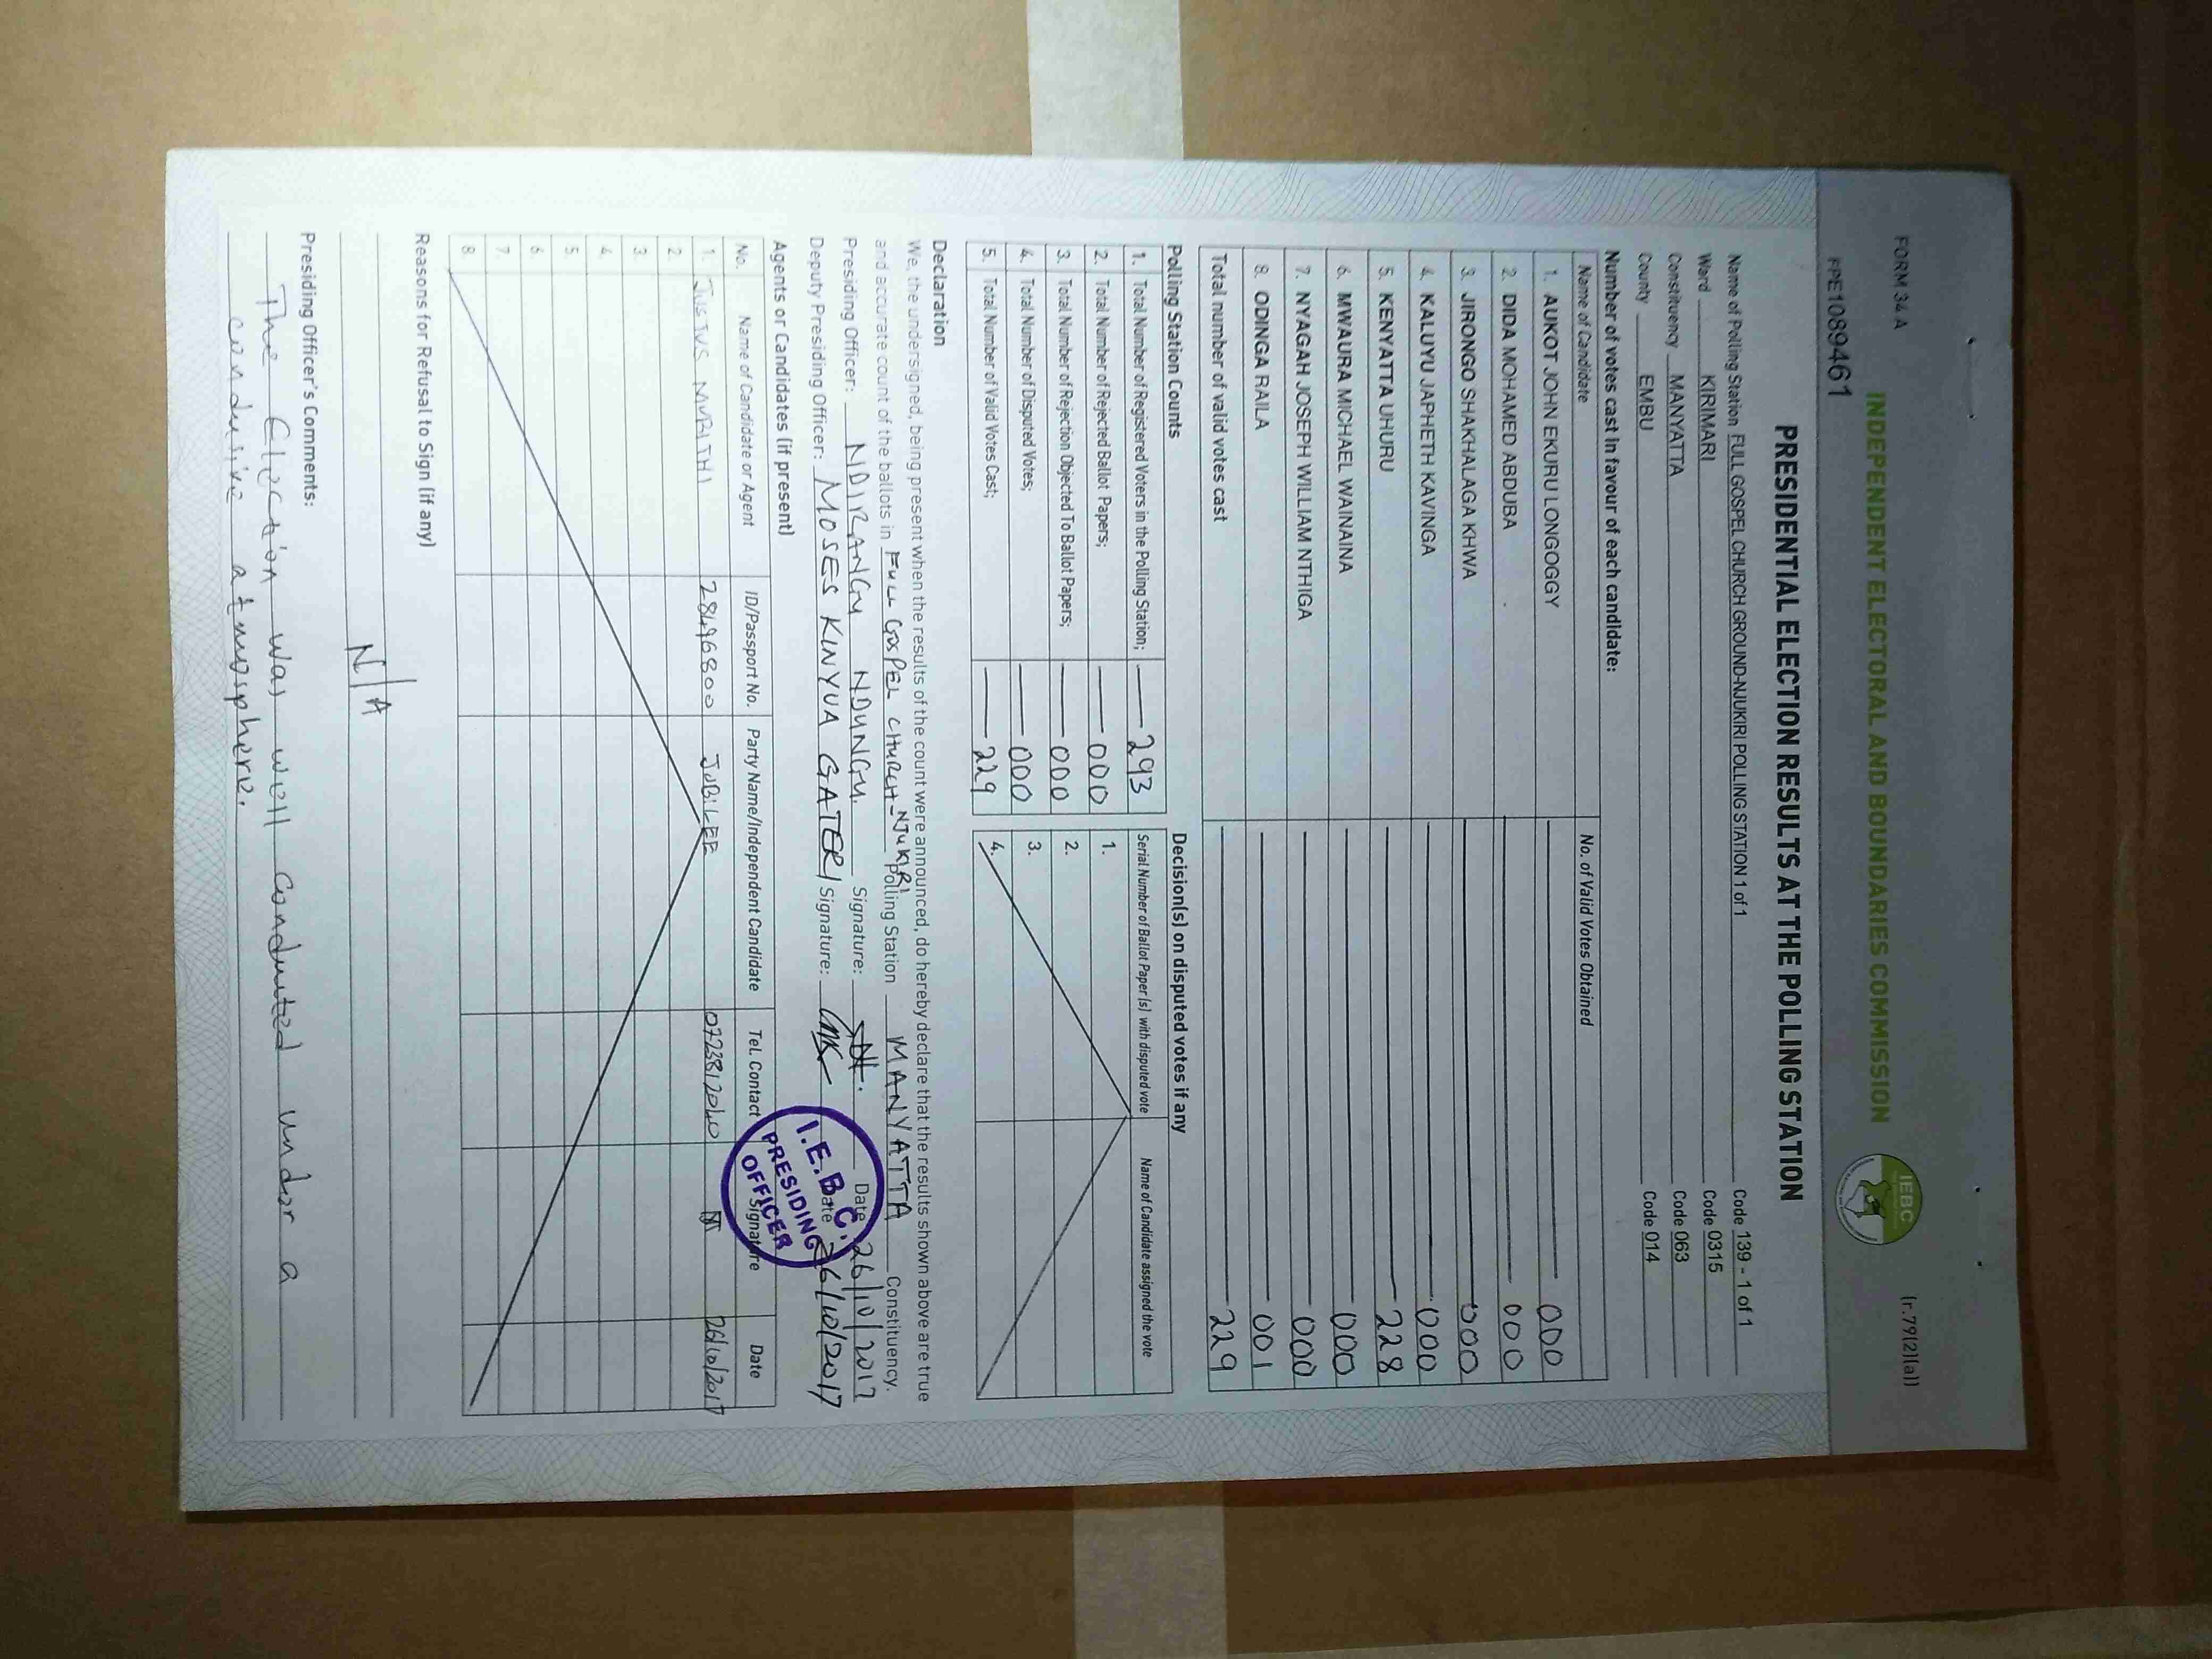 FORM 34 A
(r.79(2)(a))
INDEPENDENT ELECTORAL AND BOUNDARIES COMMISSION
IEBC
PPE1089461
PRESIDENTIAL ELECTION RESULTS AT THE POLLING STATION
Name of Polling Station FULL GOSPEL CHURCH GROUND-NJUKIRI POLLING STATION 1 of 1 Code 139 - 1 of 1
Ward KIRIMARI Code 0315
Constituency MANYATTA Code 063
County EMBU Code 014
Number of votes cast in favour of each candidate:
Name of Candidate No. of Valid Votes Obtained
1. AUKOT JOHN EKURU LONGOGGY 000
2. DIDA MOHAMED ABDUBA 000
3. JIRONGO SHAKHALAGA KHWA 000
4. KALUYU JAPHETH KAVINGA 000
5. KENYATTA UHURU 228
6. MWAURA MICHAEL WAINAINA 000
7. NYAGAH JOSEPH WILLIAM NTHIGA 000
8. ODINGA RAILA 001
Total number of valid votes cast 229
Polling Station Counts
1. Total Number of Registered Voters in the Polling Station; 293
2. Total Number of Rejected Ballot Papers; 000
3. Total Number of Rejection Objected To Ballot Papers; 000
4. Total Number of Disputed Votes; 000
5. Total Number of Valid Votes Cast; 229
Decision(s) on disputed votes if any
Serial Number of Ballot Paper (s) with disputed vote Name of Candidate assigned the vote
1.
2.
3.
4.
Declaration
We, the undersigned, being present when the results of the count were announced, do hereby declare that the results shown above are true
and accurate count of the ballots in FULL GOSPEL CHURCH - NJUKIRI Polling Station MANYATTA Constituency.
Presiding Officer: NDIRANGU NDUNGU. Signature: Date 26/10/2017
Deputy Presiding Officer: MOSES KINYUA GATERI Signature: Date 26/10/2017
I.E.B.C.
PRESIDING
OFFICER
Agents or Candidates (if present)
No. Name of Candidate or Agent ID/Passport No. Party Name/Independent Candidate Tel. Contact Signature Date
1. JUSTUS MURITHI 28496800 JUBILEE 0723812040 26/10/2017
2
3.
4.
5.
6.
7.
8.
Reasons for Refusal to Sign (if any)
N/A
Presiding Officer's Comments:
The Election was well conducted under a
condusive atmosphere.